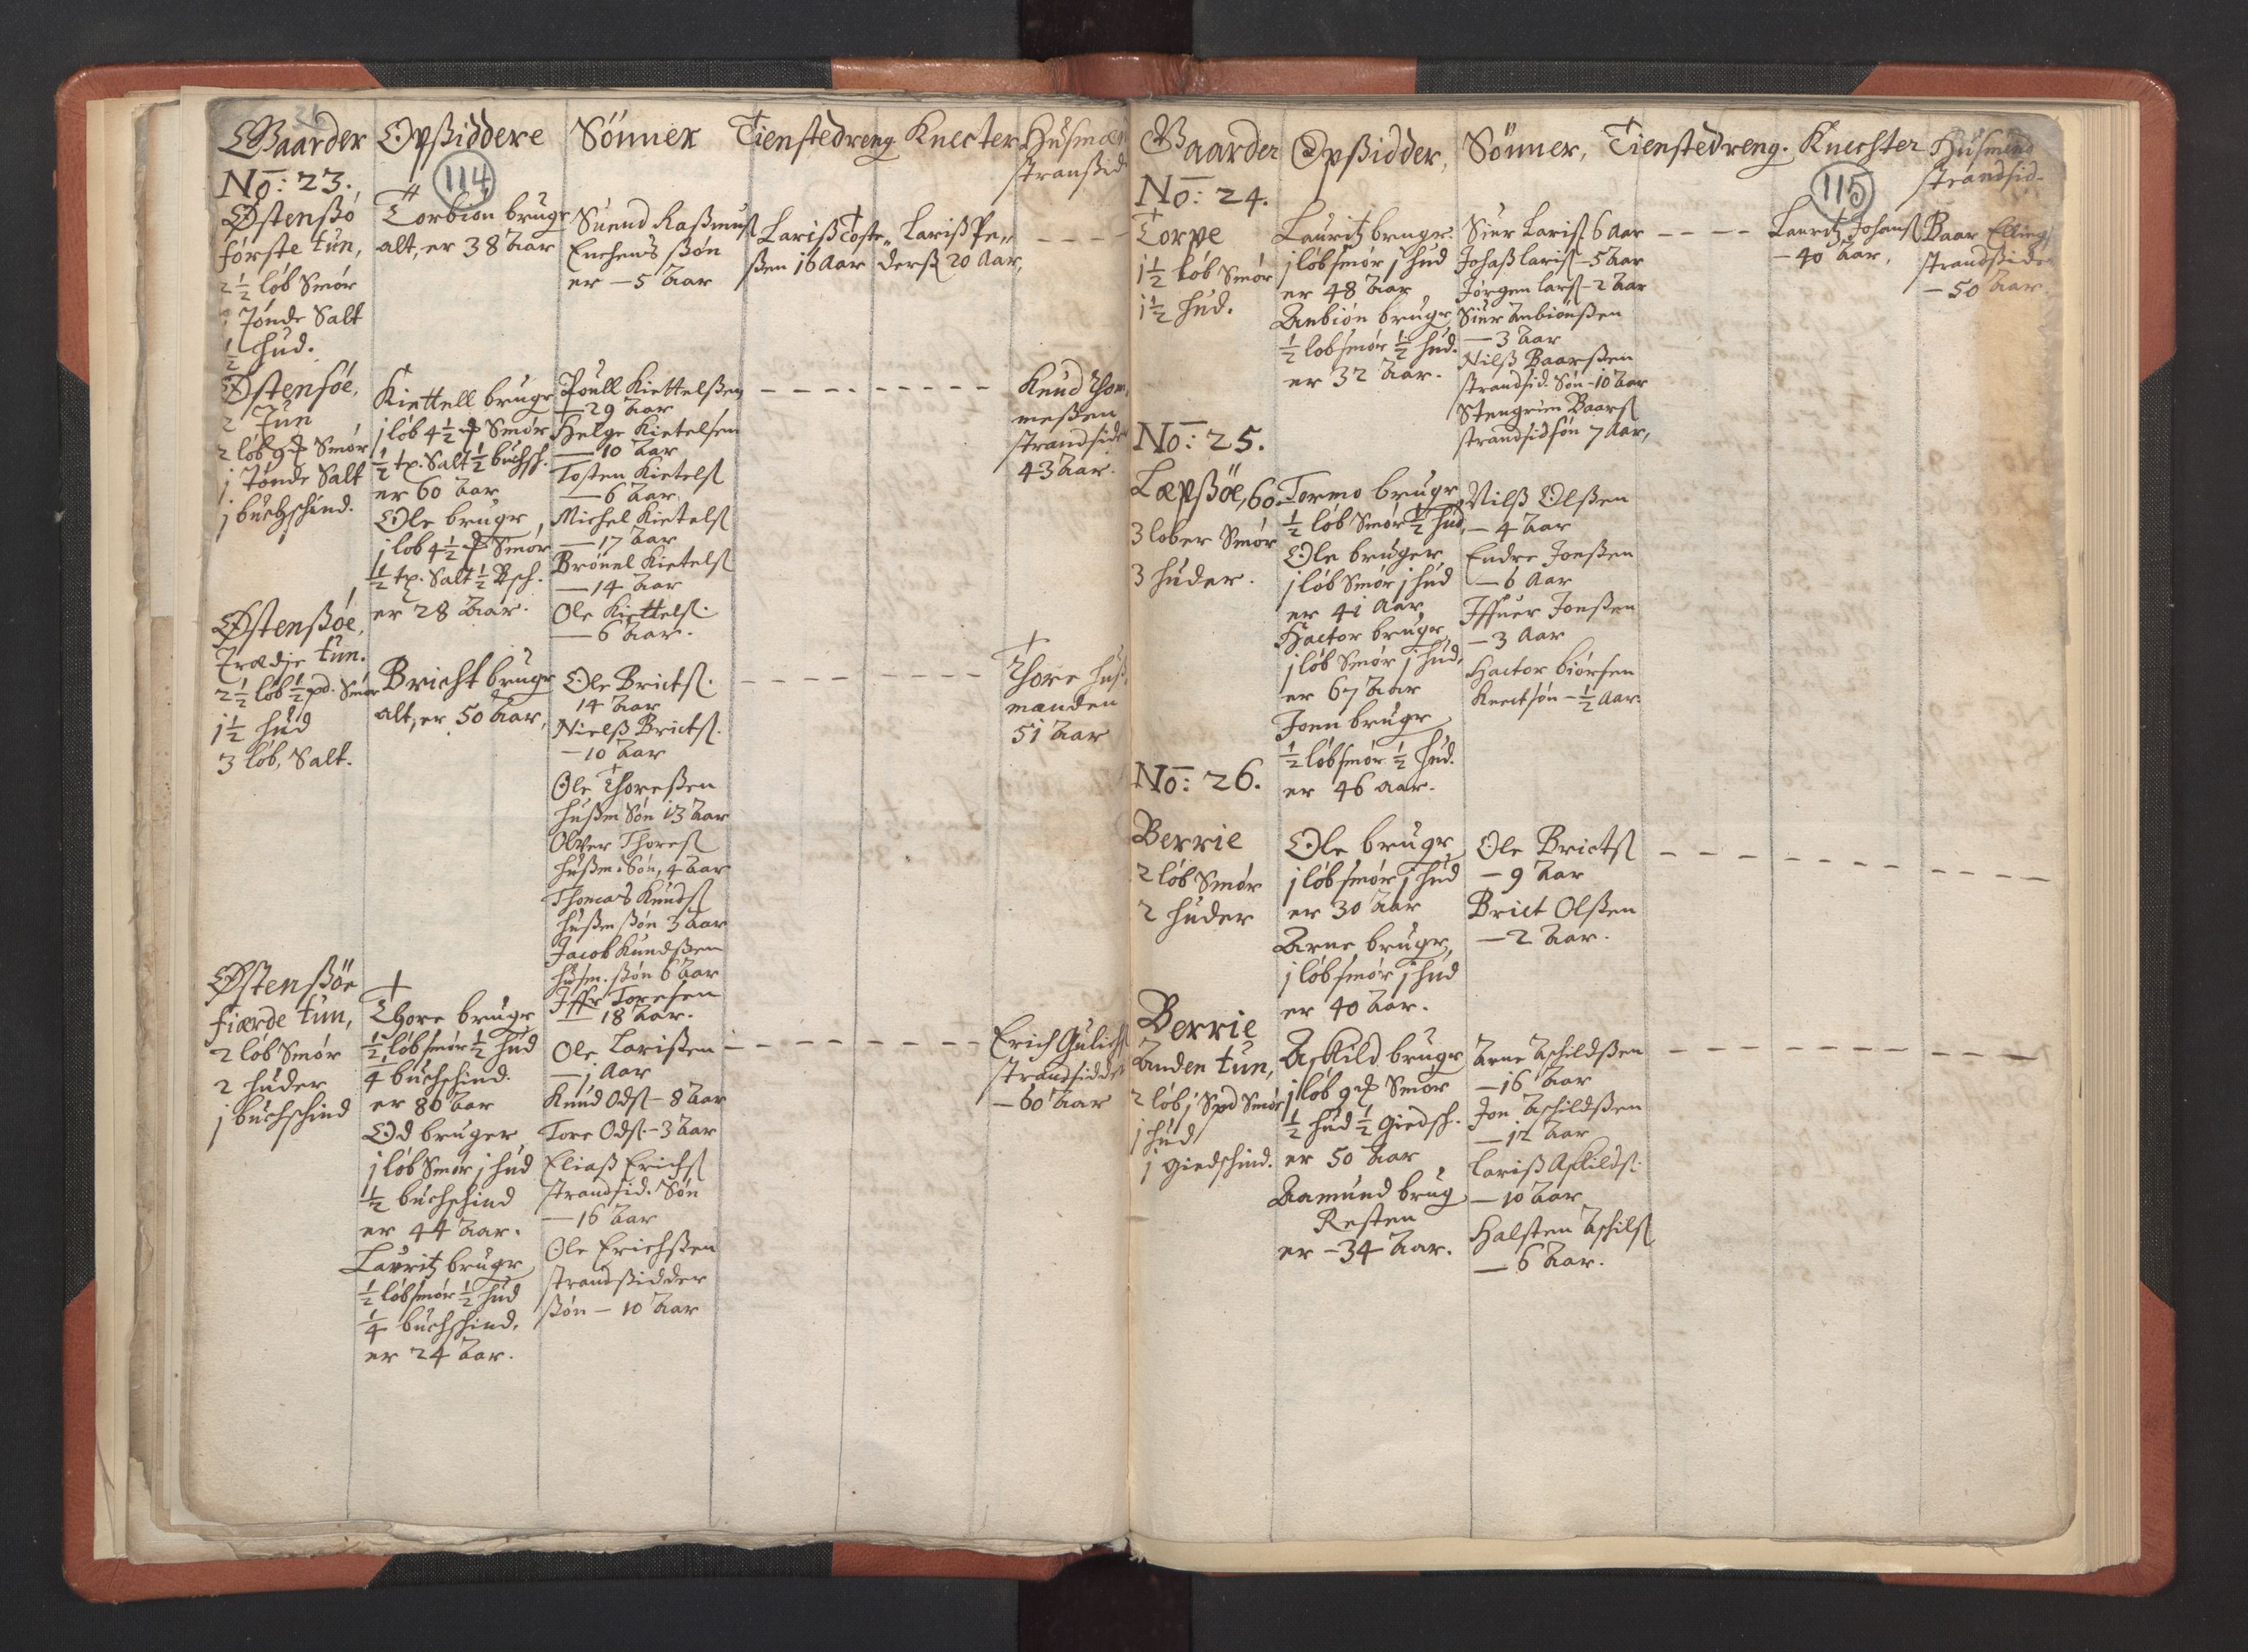 Gaarder
Opsiddere
Sönner
Tienstedreng
Knecter
stransid
No: 23.
114
Östensö
förste tun,
2 1/2 löb Smör
Tönde Salt
1/2 hud.
Torbiön brugr
alt, er 38 Aar
Suend Rasmusß
Enchens ssön
er – 5 Aar
Larisß Toste„
ßen 16 Aar
Larisß Pe„
derß 20 Aar,
Östensöe,
2 Tun
2 löb 9 ₰ Smör
j Tönde Salt
j buchschind.
Kiettell brugr
j löb 4 1/2 ₰ Smör
1/2 tp. Salt 1/2 buchsch.
er 60 Aar
Ole brugr,
j löb 4 1/2 ₰ Smör
1/2 tp. Salt 1/2 Bsch.
er 28 Aar.
Poull Kiettelßen
– 29 Aar
Helge Kietelsen
– 10 Aar
Tosten Kietelß
– 6 Aar
Michel Kietelß
– 17 Aar
Brönel Kietelß
– 14 Aar
Ole Kiettelß.
– 6 Aar.
Knud Thom
meßen
strandside
43 Aar.
Östenßöe,
Trædje tun.
2 1/2 löb 1/2 pd. Smör
j 1/2 hud
3 löb. Salt.
Bricht brugr
alt, er 50 Aar,
Ole Brictß.
14 Aar
Nielß Brictß.
– 10 Aar
Ole Thoreßen
hußm Sön 13 Aar
Olver Thoreß
hußm. Sön, 4 Aar
Thomas Knudß
hußm ßön 3 Aar
Jacob Knudßen
husm. ßön 6 Aar
Iffr Toresen
– 18 Aar.
Thore Huß,
manden
51 Aar
Östenßöe
fiærde tun,
2 löb Smör
2 huder
j buchschind
Thore brugr
1/2 löb smör 1/2 hud
4 buchschind.
er 80 Aar
Od bruger
j löb Smör j hud
1/2 buchschind
er 44 Aar.
Lauritz brugr
1/2 löb smör 1/2 hud
1/4 buchschind,
er 24 Aar.
Ole Larißen
– j Aar
Knud Odß – 8 Aar
Tore Odß. – 3 Aar
Eliaß Erichß
strandsid. Sön
– 16 Aar
Ole Erichßen
strandßidder
ßön – 10 Aar
Erich Gulich
strandsidde
– 60 Aar
Gaarder
Opßidder,
Sönner,
Tienstedreng.
Knechter
Husmend
strandsid.
115
No: 24.
Torpe
1 1/2 Löb Smör
1 1/2 hud.
Lauritz brugr.
j löb smör j hud
er 48 Aar
Anbiön brugr
1/2 löb smör 1/2 hud.
er 32 Aar.
Siur Larisß 6 Aar
Johaß larisß – 5 Aar
Jörgen larß – 2 Aar
Siur Anbiönßen
– 3 Aar
Nilß Baarßen
strandsid. Sön – 10 Aar
Stengrim Baarß
strandsid sön 7 Aar,
Lauritz Johanß
– 40 Aar,
Baar Elling
strandßide
– 50 Aar.
No: 25.
Læpßöe, 60
3 löber Smör
3 huder.
Tormo brugr
1/2 löb Smör 1/2 hud,
Ole bruger
j löb Smör j hud
er 41 Aar,
Hactor brugr,
j löb Smör j hud,
er 67 Aar
Joen brugr
1/2 löb smör 1/2 hud.
er 46 aar.
Nilß Olßen
– 4 Aar
Endre Jonßen
– 6 Aar
Iffuer Jonßen
– 3 Aar
Hactor biörsen
Knectsön – 1/2 Aar.
No: 26.
Berrie
2 löb Smör
2 huder
Ole brugr
j löb smör j hud
er 30 Aar
Arne brugr,
j löb smör j hud
er 40 Aar.
Ole Brictß
– 9 Aar
Brict Olßen
– 2 Aar.
Berrie
Anden tun,
2 löb j Spd Smör
j hud
j giedschind.
Askild brugr
j löb 9 ₰ Smör
1/2 hud 1/2 giedsch.
er 50 Aar
Aamund brug
Resten
er – 34 Aar.
Arne Aschildßen
– 16 Aar
Jon Aschildßen
– 12 Aar
Lariß Askildß.
– 10 Aar
Halsten Aschilß
– 6 Aar.